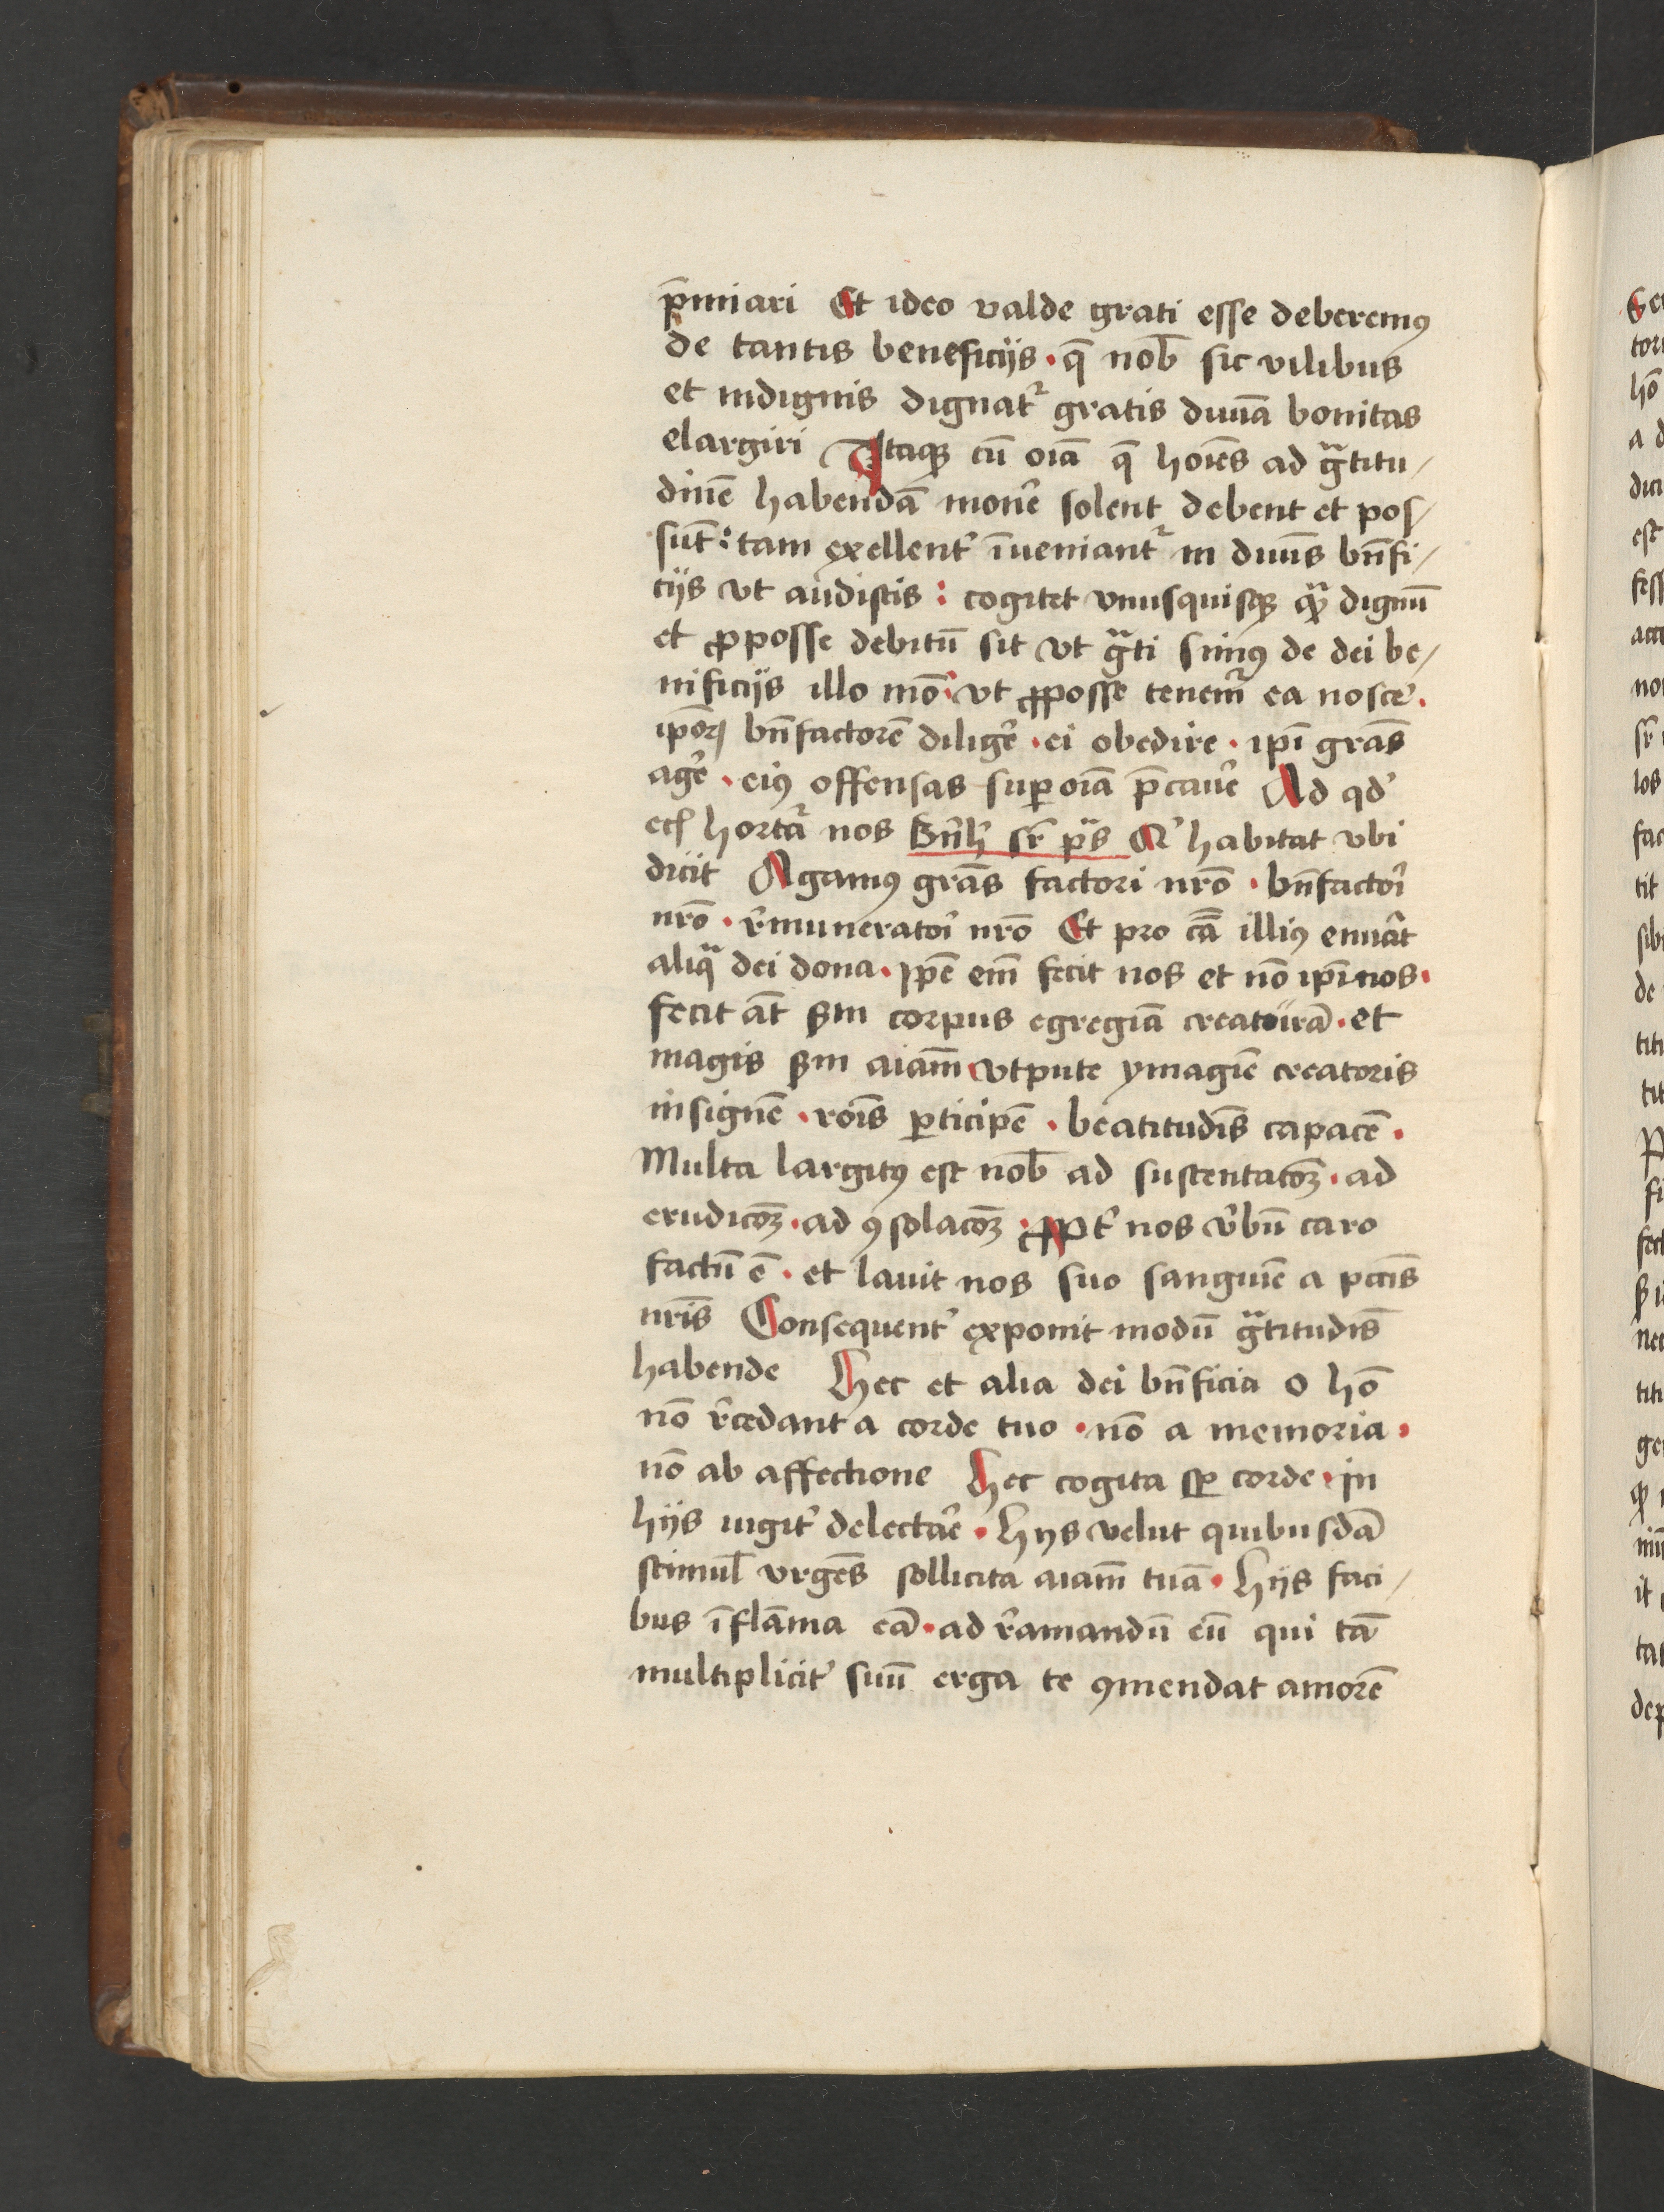 p̄miari Et ideo valde grati esse deberemꝰ
de tantis beneficijs · q̄ nob̄ sic vilibus
et indignis dignat᷑ gratis diuīa bonitas
elargiri Itaqꝫ cū oīa q̄ hoīes ad gͣtitu/
dinē habendā mon̄e solent debent et pos/
sūt : tam exellent᷑ īueniant᷑ in diuīs bn̄fi/
cijs vt audistis : cogitet vnusquisqꝫ qͣ dignū
et ꝓposse debitū sit vt gͣti simꝰ de dei be/
nificijs illo mō · vt ꝓposse tenem᷑ ea nosce᷑ ·
ip̄oꝝ bn̄factorē dilige᷑ · ei obedire · ip̄i grās
age᷑ · eiꝰ offensas suꝑ oīa p̄caue᷑ Ad qd᷑
ecꝭ hortat᷑ nos Bn̄h᷑ sr̄ ps̄ Q᷑ habitat vbi
dicit Agamꝰ grās factori nr̄o · bn̄factori
nr̄o · r᷑muneratori nr̄o Et pro cā illiꝰ enūat
aliqͣ dei dona · ip̄e em̄ fecit nos et nō ip̄i nos ·
fecit aūt ẜm corpus egregiā creaturā · et
magis ẜm aīam vtpute ymagīe creatoris
insignē · rōis ꝑticipē · beatitudīs capacē ·
Multa largitꝰ est nob̄ ad sustentacōꝫ · ad
erudicōꝫ · ad ꝯsolacōꝫ : ꝓpt᷑ nos v᷑bū caro
factū ē · et lauit nos suo sanguīe a pctīs
nr̄is Consequent᷑ exponit modū gͣtitudīs
habende Hec et alia dei bn̄ficia o hō
nō r᷑cedant a corde tuo · nō a memoria ·
nō ab affectione Hec cogita sꝑ corde · in
hijs iugit᷑ delectare · Hijs velut quibusdā
stimul̄ vrgēs sollicita aīam tuā · Hijs faci/
bus īflāma eā · ad r᷑amandū eū qui tā
multiplicit᷑ suū erga te ꝯmendat amorē